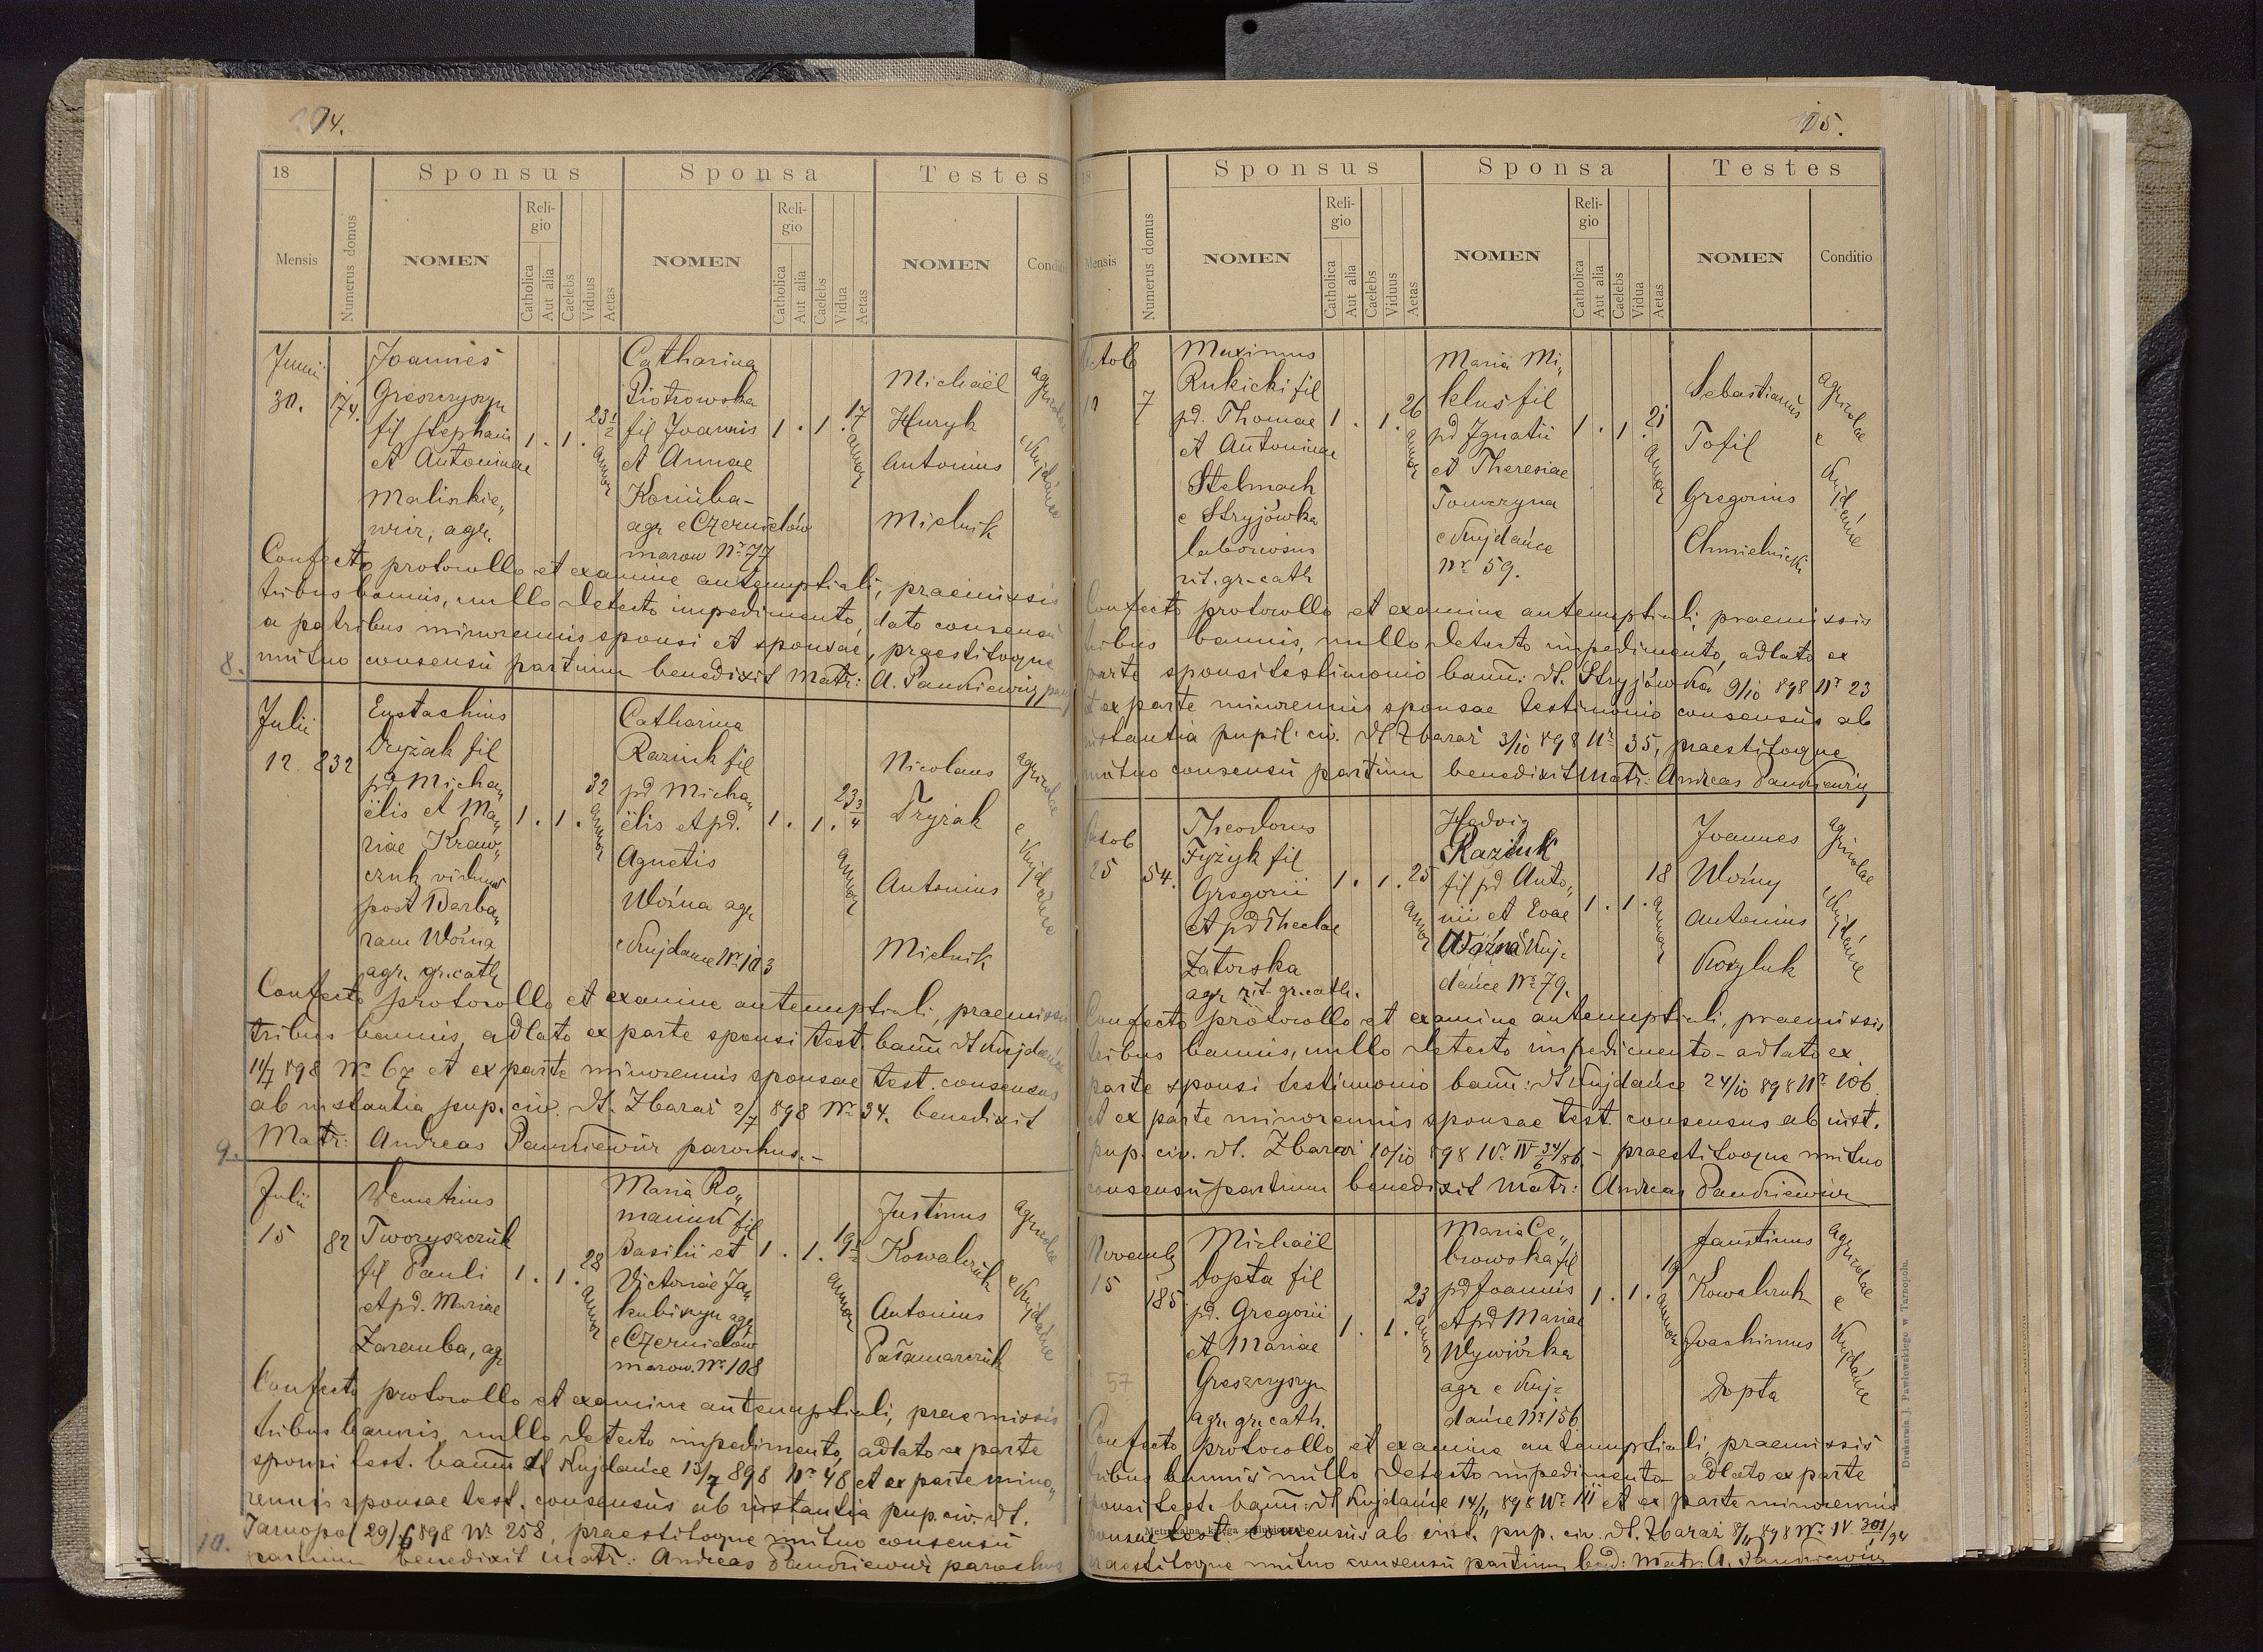 14.
18
Sponsus
Sponsa
Testes
Mensis
Numerus domus
NOMEN
Religio
Catholica
Aut alia
Caelebs
Viduus
Aetas
NOMEN
Religio
Catholica
Aut alia
Caelebs
Vidua
Aetas
NOMEN
Conditio
Junii
30.
174.
Joannes
Greszczyszyn
fil Stephani
et Antoninae
Malinkie„
wicz, agr.
1 . 1 .
23 1/2
annor
Catharina
Piotrowska
fil Joannis
et Annae
Kociuba-
agr e Czernielów
mazow Nr 77
1 . 1 .
17
annor
Michaël
Huryk
Antonius
Mielnik
agricolae
e Kujdańce
Confecto protocollo et examine antenuptiali, praemissis
tribus bannis, nullo detecto impedimento, dato consensu
a patribus minorennis sponsi et sponsae, praestitoque
8. mutuo consensu partium benedixit Matr: A. Pankiewicz
Julii
12
832
Eustachius
Dryżak fil
pd Micha„
ëlis et Ma„
riae Kraw„
czuk viduus
post Barba„
ram Woźna
agr. gr. cath
1 . 1 .
32
annor
Catharina
Raziuk fil
pd Micha„
ëlis et pd.
Agnetis
Woźna agr
e Kujdance Nr 103
1 . 1 .
23 3/4
annor
Nicolaus
Dryżak
Antonius
Mielnik
agricolae
e Kujdańce
Confecto protocollo et examine antenuptiali, praemissis
tribus bannis, adlato ex parte sponsi test. bann dt Kujdańce
11/7 898 Nr 67 et ex parte minorennis sponsae test. consensus
ab instantia pup. civ. dt. Zbaraż 2/7 898 Nr 34. benedixit
9. Matr: Andreas Pankiewicz parochus.-
Julii
15
82
Demetrius
Tworyszczuk
fil Pauli
et pd. Mariae
Zaremba, agr
1 . 1 .
28
annor
Maria Ro„
maniuk fil
Basilii et
Victoriae Ja„
kubiszyn agr
e Czernielów
mazow. Nr 108
1 . 1 .
19 1/2
annor
Justinus
Kowalczuk
Antonius
Pałamarczuk
agricolae
e Kujdańce
Confecto protocollo et examine antenuptiali, praemissis
tribus bannis, nullo detecto impedimento, adlato ex parte
sponsi test. bann dt Kujdańce 13/7 898 Nr 48 et ex parte mino„
rennis sponsae test. consensus ab instantia pup. civ. dt.
Tarnopol 29/6 898 Nr 258, praestitoque mutuo consensu
10. partium benedixit Matr: Andreas Pankiewicz parochus
15.
18
Sponsus
Sponsa
Testes
Mensis
Numerus domus
NOMEN
Religio
Catholica
Aut alia
Caelebs
Viduus
Aetas
NOMEN
Religio
Catholica
Aut alia
Caelebs
Vidua
Aetas
NOMEN
Conditio
Octob
10
7
Maximus
Rukicki fil
pd. Thomae
et Antoninae
Stelmach
e Stryjówka
laboriosus
rit. gr-cath
1 . 1 .
26
annor
Maria Mi„
klus fil
pd Ignatii
et Theresiae
Tomczyna
e Kujdańce
Nr 59.
1 . 1 .
21
annor
Sebastianus
Tofil
Gregorius
Chmielnicki
agricolae
e
Kujdańce
Confecto protocollo et examine antenuptiali, praemissis
tribus bannis, nullo detecto impedimento, adlato ex
parte sponsi testimonio bann: dt. Stryjówka 9/10 898 Nr 23
et ex parte minorennis sponsae testimonio consensus ab
instantia pupil. civ. dt Zbaraż 3/10 898 Nr 35, praestitoque
mutuo consensu partium benedixit Matr: Andreas Pankiewicz
Octob
25
54.
Theodorus
Fyżyk fil
Gregorii
et pd Theclae
Zatorska
agr rit. gr. cath.
1 . 1 .
25
annor
Hedvig
Raziuk
fil pd Anto„
nii et Evae
Woźna e Kuj-
dańce Nr 79.
1 . 1 .
18
annor
Joannes
Woźny
Antonius
Kozyluk
agricolae
e Kujdańce
Confecto protocollo et examine antenuptiali, praemissis
tribus bannis, nullo detecto impedimento - adlato ex
parte sponsi testimonio bann: dt Kujdańce 24/10 898 Nr 106
et ex parte minorennis sponsae test. consensus ab inst.
pup. civ. dt. Zbaraż 10/10 898 Nr IV 34/86 6 - praestitoque mutuo
consensu partium benedixit Matr: Andreas Pankiewicz
Novemb
15
185
57
Michaël
Dopta fil
pd. Gregorii
et Mariae
Greszczyszyn
agr. gr. cath.
1 . 1 .
23
annor
Maria Ce„
browska fil
pd Joannis
et pd Mariae
Wywiórka
agr e Kuj-
dańce Nr 156
1 . 1 .
19
annor
Faustinus
Kowalczuk
Joachimus
Dopta
agricolae
e
Kujdańce
Confecto protocollo et examine antenuptiali, praemissis
tribus bannis nullo detecto impedimento adlato ex parte
sponsi test. bann: dt Kujdańce 14/11 898 Nr 111 et ex parte minorennis
sponsae test. consensus ab inst. pup. civ. dt. Zbaraż 8/11 898 Nr IV 301/94
praestitoque mutuo consensu partium bened: Matr: A. Pankiewicz
Drukarnia J. Pawłowskiego w Tarnopolu.